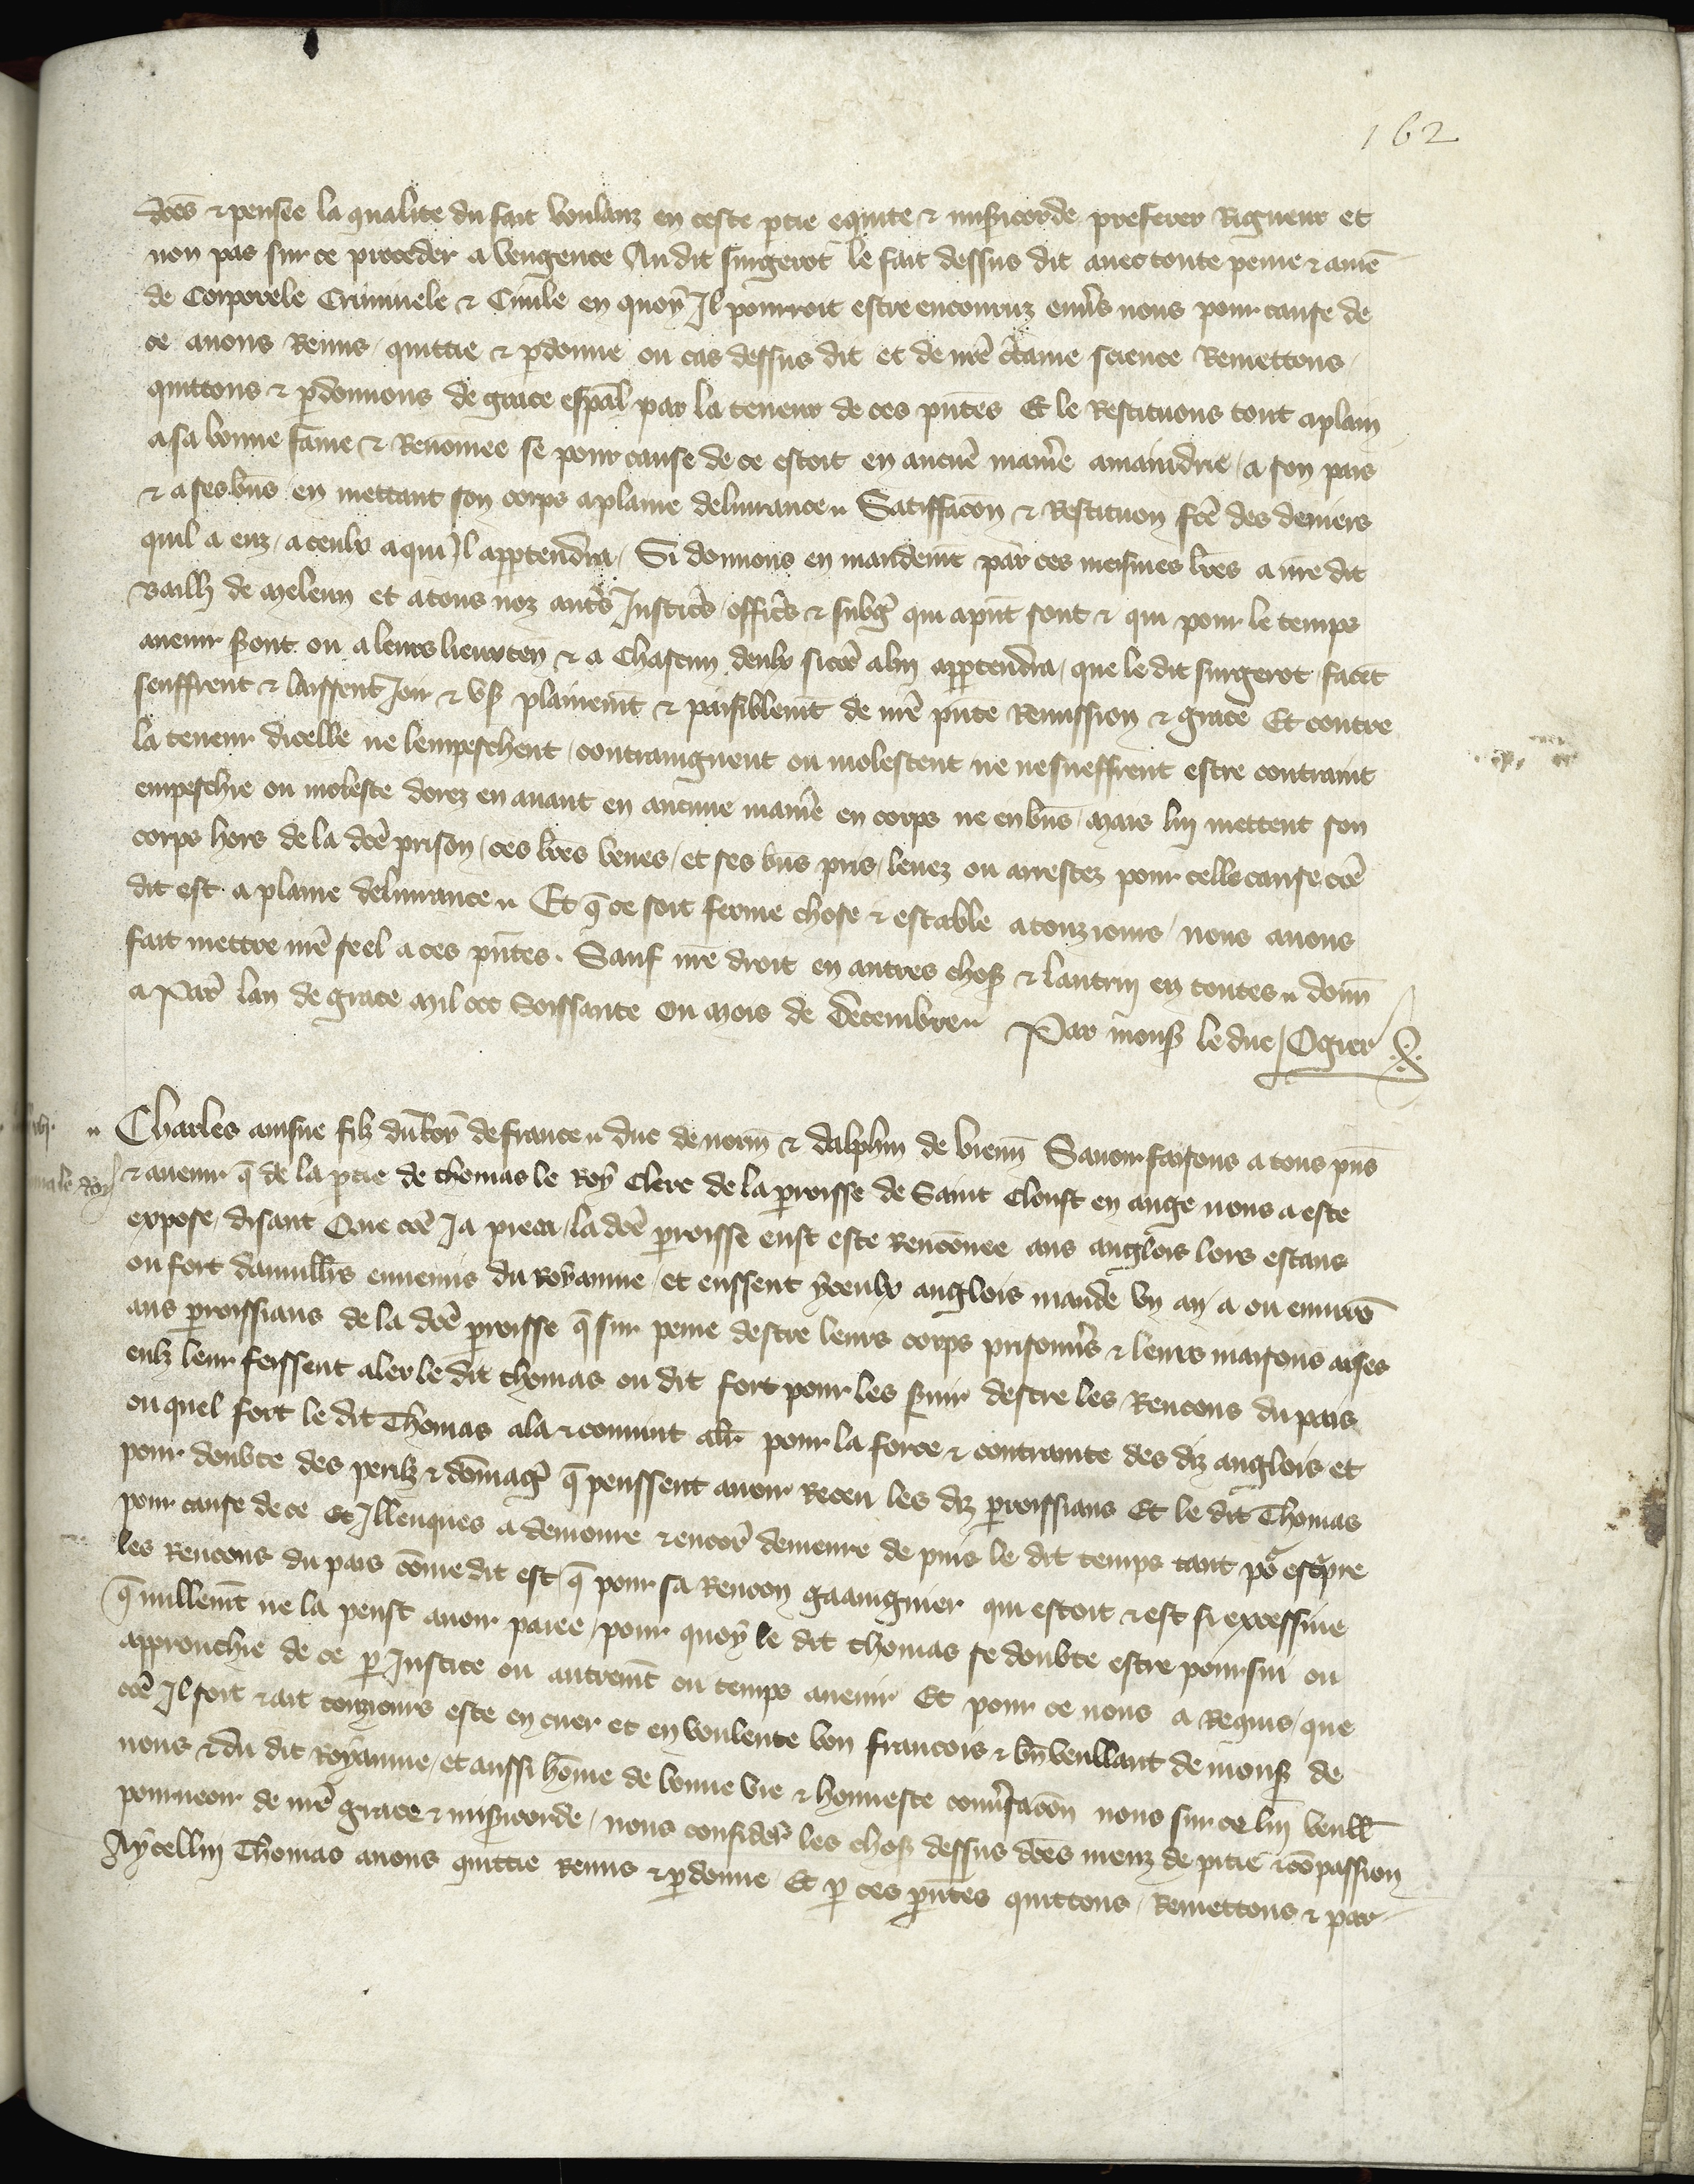 162
dces & pensee la qualite du fait voulanz en ceste ptie equite & misicorde preferer Rigueur et
non pas sur ce proceder a vengence Au dit singerot le fait dessus dit avec toute peine & amē
de Corporele Criminele & Civile en quoy Il pourroit estre encouruz envs nous pour cause de
ce avons Remis quittie & pdonne ou cas dessus dit et de nre ctaine science Remettons
quittons & pdonnons de grace espāl par la teneur de ces pntes Et le Restituons tout aplain
a sa bonne fame & Renomee se pour cause de ce estoit en aucūe maniē amainrdrie a son pais
& a ses bns en mettant son corps aplaine delivrance Satiffacōn & Restitucon fcē des deniers
quil a euz a ceulx a qui Il apptendra Si donnons en mandemt par ces meismes lres a nre dit
Bailli de meleun et a tous noz autres Justicrs officrs & subgz qui apnt sont & qui pour le temps
avenir sont ou a leurs lieuxten & a Chascun deulx sicōe a lui apptendra que le dit singerot facēt
seuffrent & laissent Joir & us plainemt & paisiblemt de nre pnte Remission & grace Et contre
la teneur dicelle ne lempeschent contraignent ou molestent ne ne sueffrent estre contraint
empeschie ou moleste dorez en avant en aucune manie en corps ne en bns mais lui mettent son
corps hors de la dce prison ces lres veues et ses bns pris levez ou arrestez pour celle cause cōe
dit est a plaine delivrance Et q̄ ce soit ferme chose & estable a touziours nous avons
fait mettre nre seel a ces pntes. Sauf nre droit en autres chos & lautruy en toutes donn
a Par lan de grace mil ccc Soissante ou mois de Decembre Par mons le duc Ogier
Charles ainsne filz du Roy de france duc de norm & dalphin de vienn Savoir faisons a tous pns
& avenir q̄ de la ptie de thomas le Roy Clerc de la proisse de Saint Cloust en auge nous a este
expose disant Que cōe Ja pieca la dce proisse eust este Renconnee aus anglois lors estans
ou fort danvillrs ennemis du Royaume et eussent yceulx anglois mande un an a ou environ
aus proissians de la dce proisse q̄ sur peine destre leurs corps prisonnrs & leurs maisons arses
eulz leur feissent aler le dit thomas ou dit fort pour les suir descre les Rencons du pais
ou quel fort le dit Thomas ala & convint alr pour la force & contrainte des diz anglois et
pour doubte des perilz & dōmagz q̄ peussent avoir Receu les diz proissians Et le dit Thomas
pour cause de ce et Illeuques a demoure & encor demeure de puis le dit temps tant por escpre
les Rencons du pais cōme dit est q̄ pour sa Rencon gaaingnier qui estoit & est si excessive
q̄ nullemt ne la peust avoir paiee pour quoy le dit thomas se doubte estre poursui ou
approuchie de ce p Justice ou autremt ou temps avenir Et pour ce nous a Requis que
cōe Il soit & ait touziours este en cuer et en voulente bon francois & bn veullant de mons de
nous & du dit Royaume et aussi hōme de bonne vie & honneste convsacōn nous sur ce lui veull
pourveoir de nre grace & misicorde nous considr les chos dessus dces meuz de pitie & cōpassion
A ycellui Thomas avons quittie Remis & pdonne Et p ces pntes quittons Remettons & par